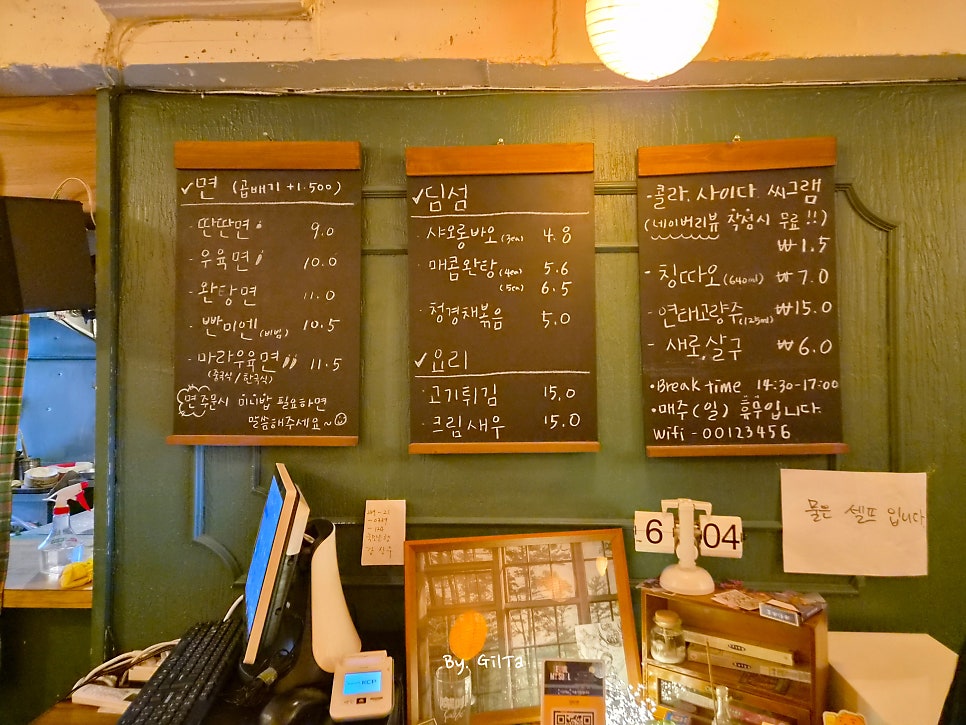 ✓면 (곱배기 +1.500)
· 딴딴면 9.0
· 우육면 10.0
· 완탕면 11.0
· 빤미엔 (비빔) 10.5
· 마라우육면 11.5
(중국식/한국식)
면주문시 미니밥 필요하면
말씀해주세요~
✓딤섬
· 샤오롱바오 (3ea) 4.8
· 매콤완탕 (4ea) 5.6
(5ea) 6.5
· 청경채볶음 5.0
✓요리
· 고기튀김 15.0
· 크림새우 15.0
· 콜라. 사이다. 씨그램
(네이버리뷰 작성시 무료!!)
₩1.5
- 칭따오 (640ml) ₩7.0
- 연태고량주 (125ml) ₩15.0
- 새로.살구 ₩6.0
• Break time 14:30-17:00
• 매주(일) 휴무입니다.
Wifi - 00123456
물은 셀프 입니다
6 04
By. GilTa